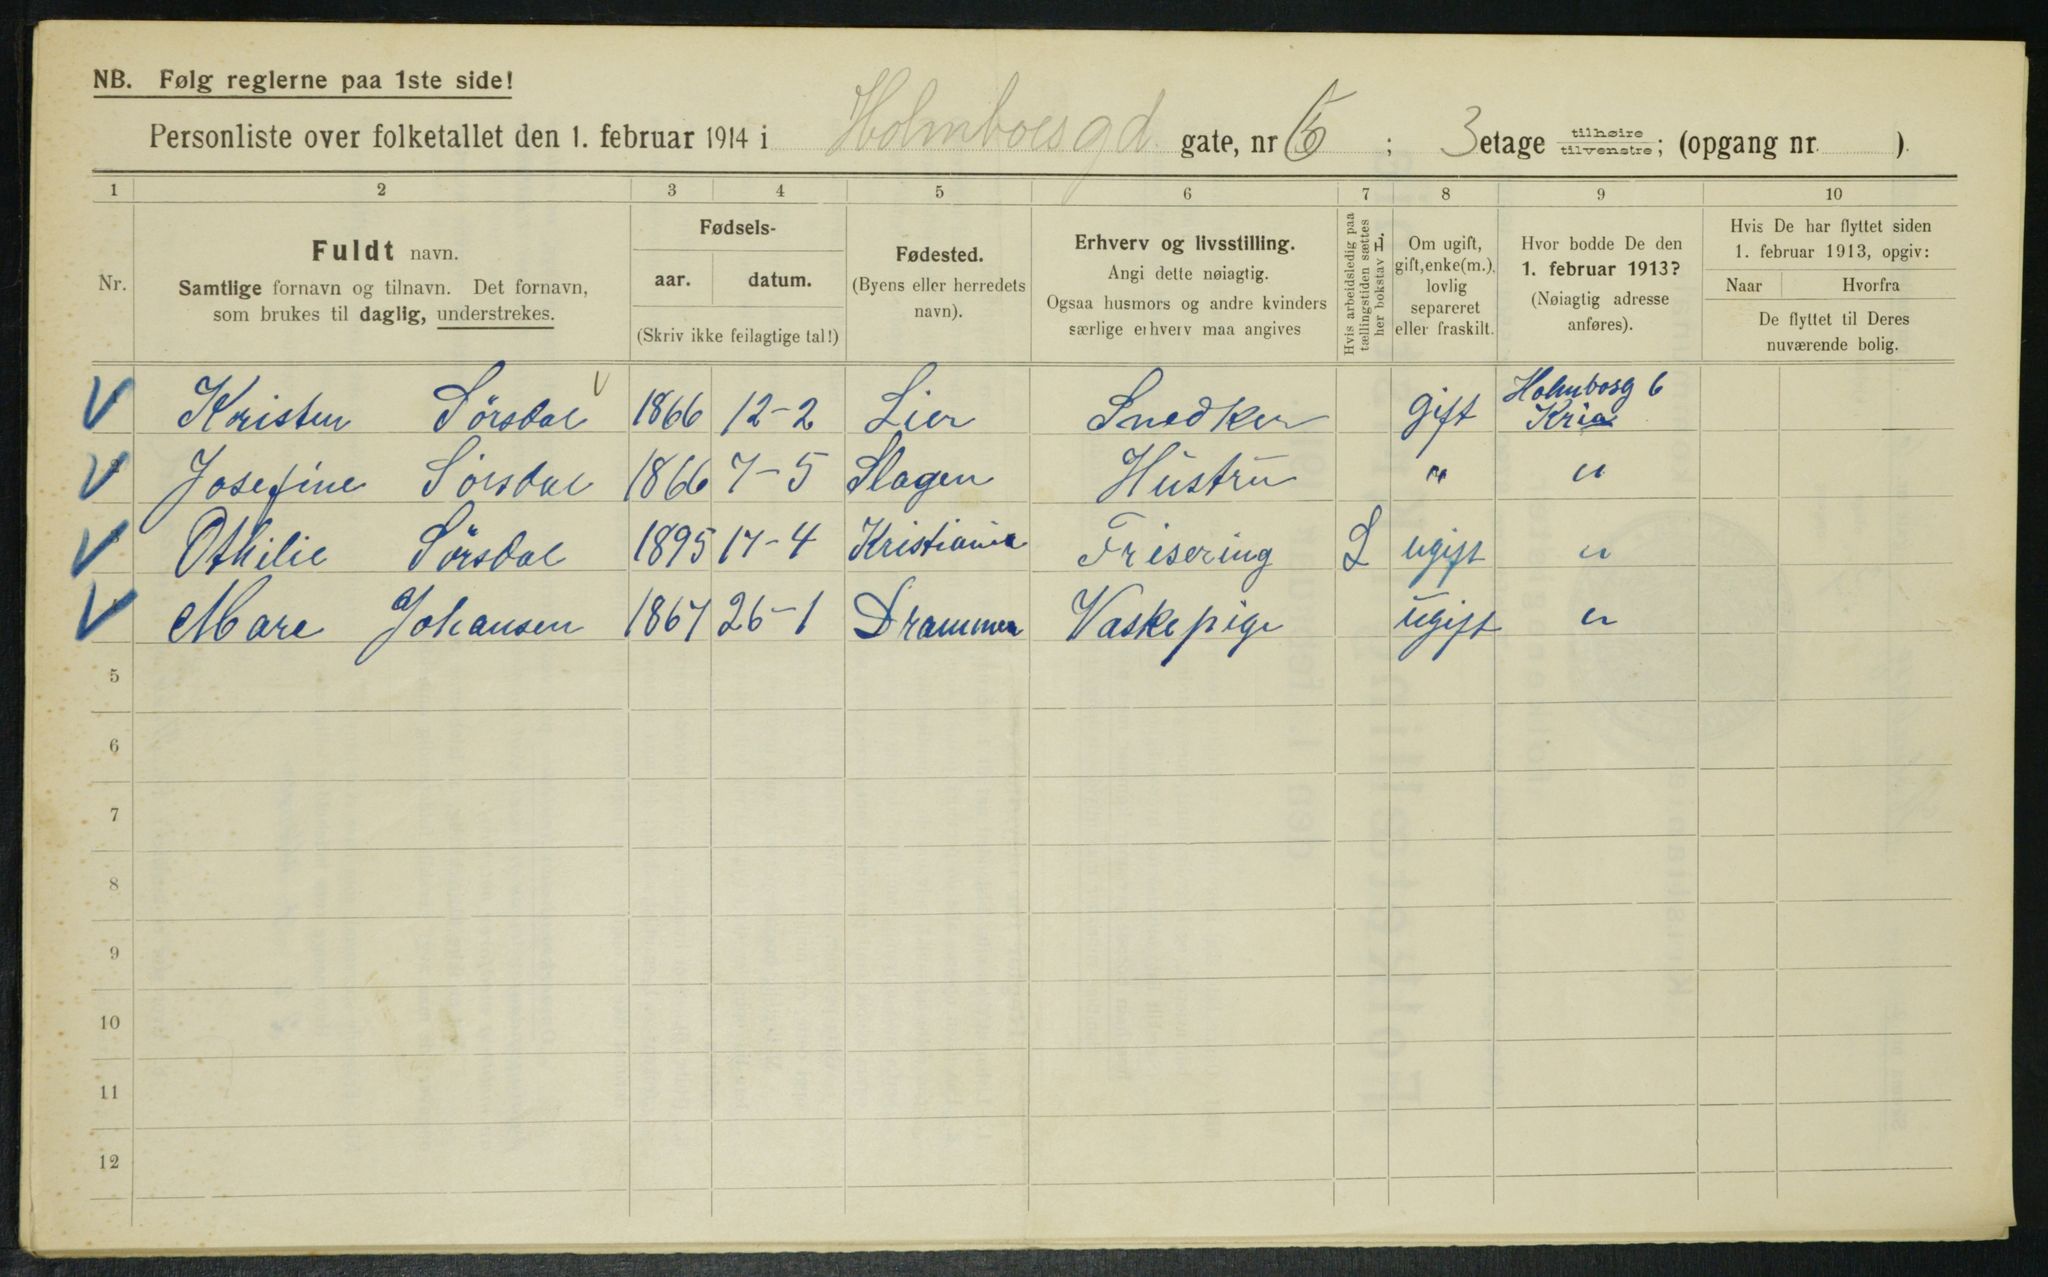 NB. Følg reglerne paa 1ste side!
Personliste over folketallet den 1. februar 1914 i Holmboesgd gate, nr 6 ; 3 etage tilhøire/tilvenstre; (opgang nr. ).
1 2 3 4 5 6 7 8 9 10
Nr.
Fuldt navn.
Samtlige fornavn og tilnavn. Det fornavn,
som brukes til daglig, understrekes.
Fødsels-
aar. datum.
(Skriv ikke feilagtige tal!)
Fødested.
(Byens eller herredets
navn).
Erhverv og livsstilling.
Angi dette nøiagtig.
Ogsaa husmors og andre kvinders
særlige erhverv maa angives
Hvis arbeidsledig paa
tællingstiden sættes
her bokstav L.
Om ugift,
gift, enke(m.),
lovlig
separeret
eller fraskilt.
Hvor bodde De den
1. februar 1913?
(Nøiagtig adresse
anføres).
Hvis De har flyttet siden
1. februar 1913, opgiv:
Naar Hvorfra
De flyttet til Deres
nuværende bolig.
Kristen Sørsdal 1866 12-2 Lier Snedker gift Holmbosg 6 Kria
Josefine Sørsdal 1866 7-5 Slagen Hustru " "
Othilie Sørsdal 1895 17-4 Kristiania Frisering L ugift "
Mare Johansen 1867 26-1 Drammen Vaskepige ugift "
5
6
7
8
9
10
11
12